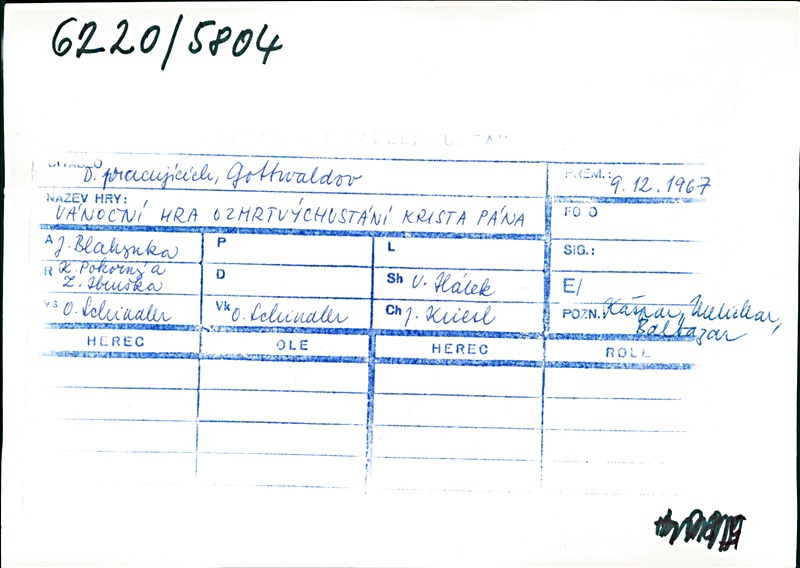 6220/5804
DIVADLO D. pracujících, Gottwaldov
PREM.: 9.12.1967
NÁZEV HRY:
VÁNOČNÍ HRA O ZMRTVÝCHVSTÁNÍ KRISTA PÁNA
FO O
A J. Blahynka
P
L
SIG.:
R K. Pokorný a
Z.
D
Sh V. Hálek
E/
VS O. Schindler
Vk O. Schindler
Ch J.
POZN. Kašpar, Melichar,
Baltazar
HEREC OLE HEREC ROLE